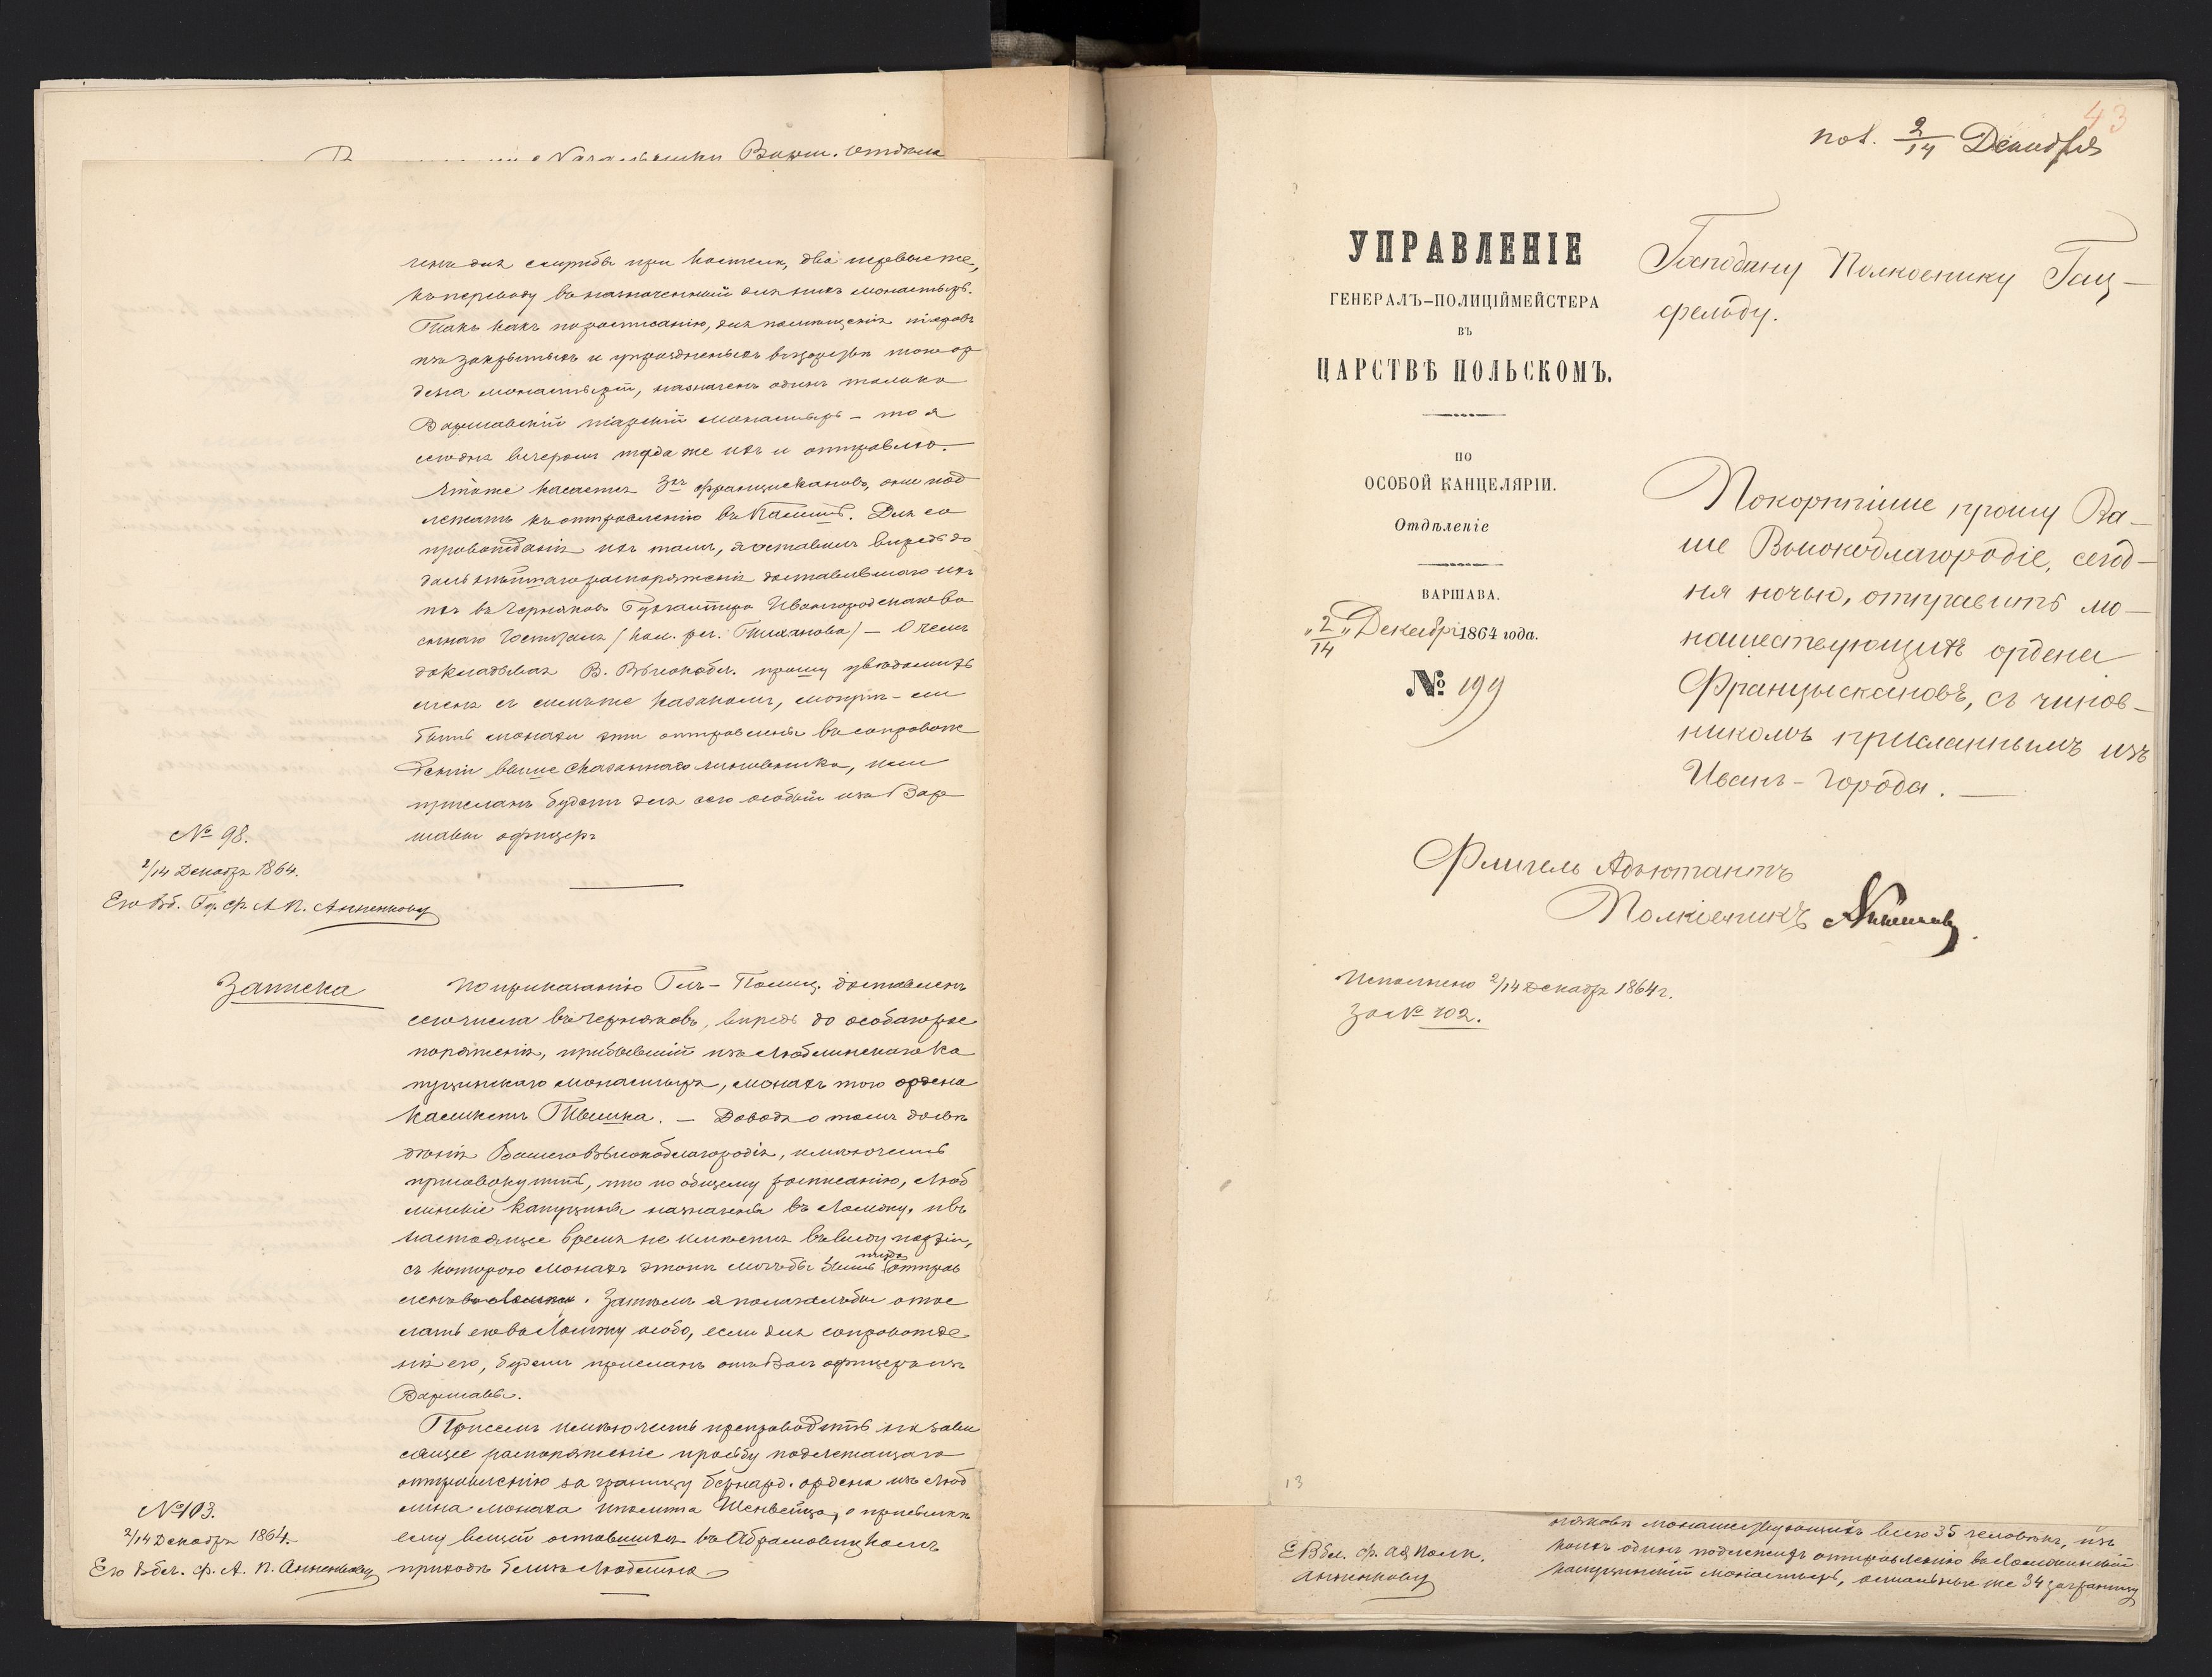 Начальника Варш. Отдела
чены для службы при костеле, два первые же,
къ переводу въ назначенный для нихъ монастырь.
Такъ какъ по росписанію, для помещенія піаровъ
изъ закрытыхъ и упраздненыхъ
дена монастырей, назначенъ одинъ только
Варшавскій піарскій монастырь – то я
сегодня вечеромъ туда же ихъ и отправлю.
Что же касается 3хъ францисканов, они под
лежатъ къ отправленію въ Калишъ. Для со
провожденія ихъ тамъ, я оставилъ впредь до
дальнѣйшаго распоряженія доставившаго их
въ Черняковъ Бухгалтера Ивангородскаго во
еннаго Госпиталя /кол. рег. Тиханова/ – О чемъ
докладывая В. Высокобл. прошу увѣдомить
меня съ симъ же казакомъ, могутъ-ли
быть монахи эти отправлены въ сопровож
деніи выше сказаннаго чиновника, или
присланъ будетъ для сего особый изъ Вар
шавы офицеръ
№ 98.
2/14 Декабря 1864.
Его Вб. Гр. Ф. А. П. Анненкову
Записка
По приказанію Гнъ-Полиц. доставленъ
сего числа въ Черняковъ, впредь до особаго рас
поряженія, прибывшій изъ Люблинскаго Ка
пуцинскаго монастыря, монахъ того ордена
Каликстъ . – Доводя о томъ до свѣ
денія Вашего Высокоблагородія, имѣю честь
присовокупить, что по общему росписанію, Люб
линскіе капуцины назначены въ Ломжу, и въ
настоящее время не имѣется въ виду партіи,
туда
съ которою монахъ этотъ могъ бы быть отправ
ленъ въ Ломжу. Затѣмъ я полагалъ бы отос
лать его въ Ломжу особо, если для сопровожде
нія его, будетъ присланъ отъ Васъ офицеръ изъ
Варшавы.
При семъ имѣю честь препроводить на зави
сящее распоряженіе просьбу подлежащаго
отправленію за границу бернард. ордена изъ Люб
лина монаха Шенвейца, о присылкѣ
ему вещей оставшихся въ Абрамовицкомъ
приходѣ близъ Люблина
№103.
2/14 Декабря 1864.
Его Вбл. Ф. А. П. Анненкову
43
пол. 2/14 Декабря
УПРАВЛЕНІЕ
ГЕНЕРАЛЪ-ПОЛИЦІЙМЕЙСТЕРА
ВЪ
ЦАРСТВѢ ПОЛЬСКОМЪ.
ПО
ОСОБОЙ КАНЦЕЛЯРІИ.
Отдѣленіе
ВАРШАВА.
„2/14„ Декабря 1864 года.
№ 199
Господину Полковнику Гац-
фельду.
Покорнѣйше прошу Ва-
ше Высокоблагородіе, сегод-
ня ночью, отправить мо-
нашествующихъ ордена
Францысканов, съ чинов-
никомъ присланнымъ изъ
Иванъ-города.
Флигель Адъютантъ
Полковникъ Анненковъ
Исполнено 2/14 Декабря 1864 г.
За № 102.
13
Е Вбл. Ф. Ад Полк.
Анненкову
няковѣ монашествующихъ всего 35 человѣкъ, изъ
коихъ одинъ подлежитъ отправленію въ Ломжинскій
капуцинскій монастырь, остальные же 34 заграницу